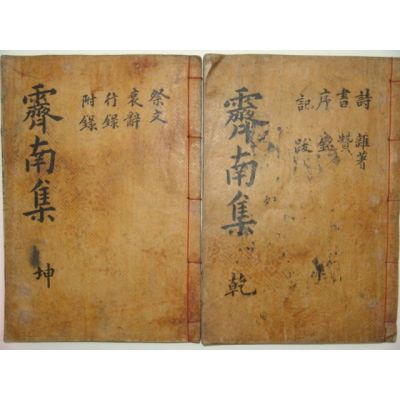 詩 雜著
書 贊
序
記 跋
霽南集 乾
祭文
哀辭
行錄
附錄
霽南集 坤